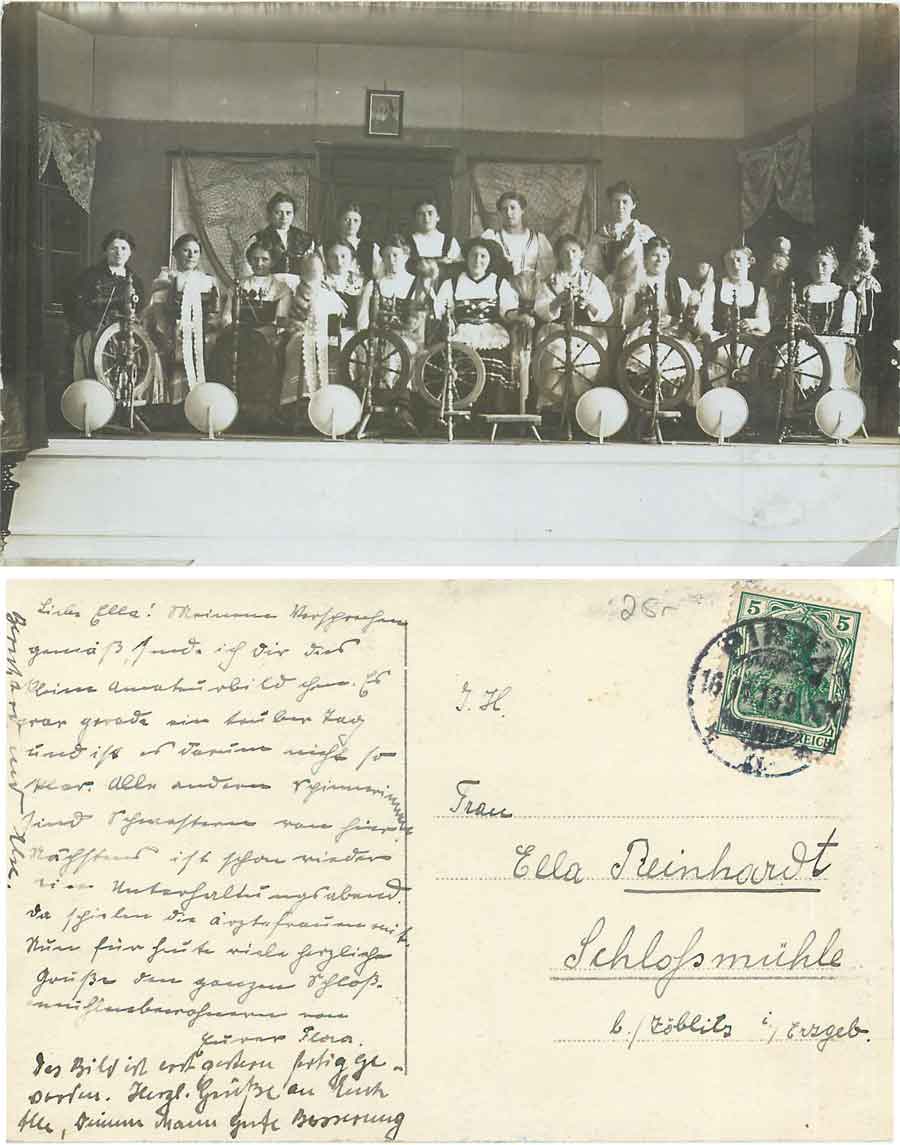 Liebe Ella! Meinem Versprechen
gemäß, sende ich dir dies
kleine Amateurbildchen. Es
war gerade ein trüber Tag
und ist es darum nicht so
klar. Alle andern Spinnerinnen
sind Schwestern von hier.
Nächstens ist schon wieder
ein Unterhaltungsabend.
Da spielen die Ärztefrauen mit.
Nun für heute viele herzliche
Grüße den ganzen Schloß-
mühlenbewohnern von
Eurer
Das Bild ist erst gestern fertig ge-
worden. Herzl. Grüße an Euch
Alle, Deinem Mann gute Besserung
28-
5 5
PIRNA
REICH
I. H.
Frau
Ella Reinhardt
Schlossmühle
b./Zöblitz i/Erzgeb.